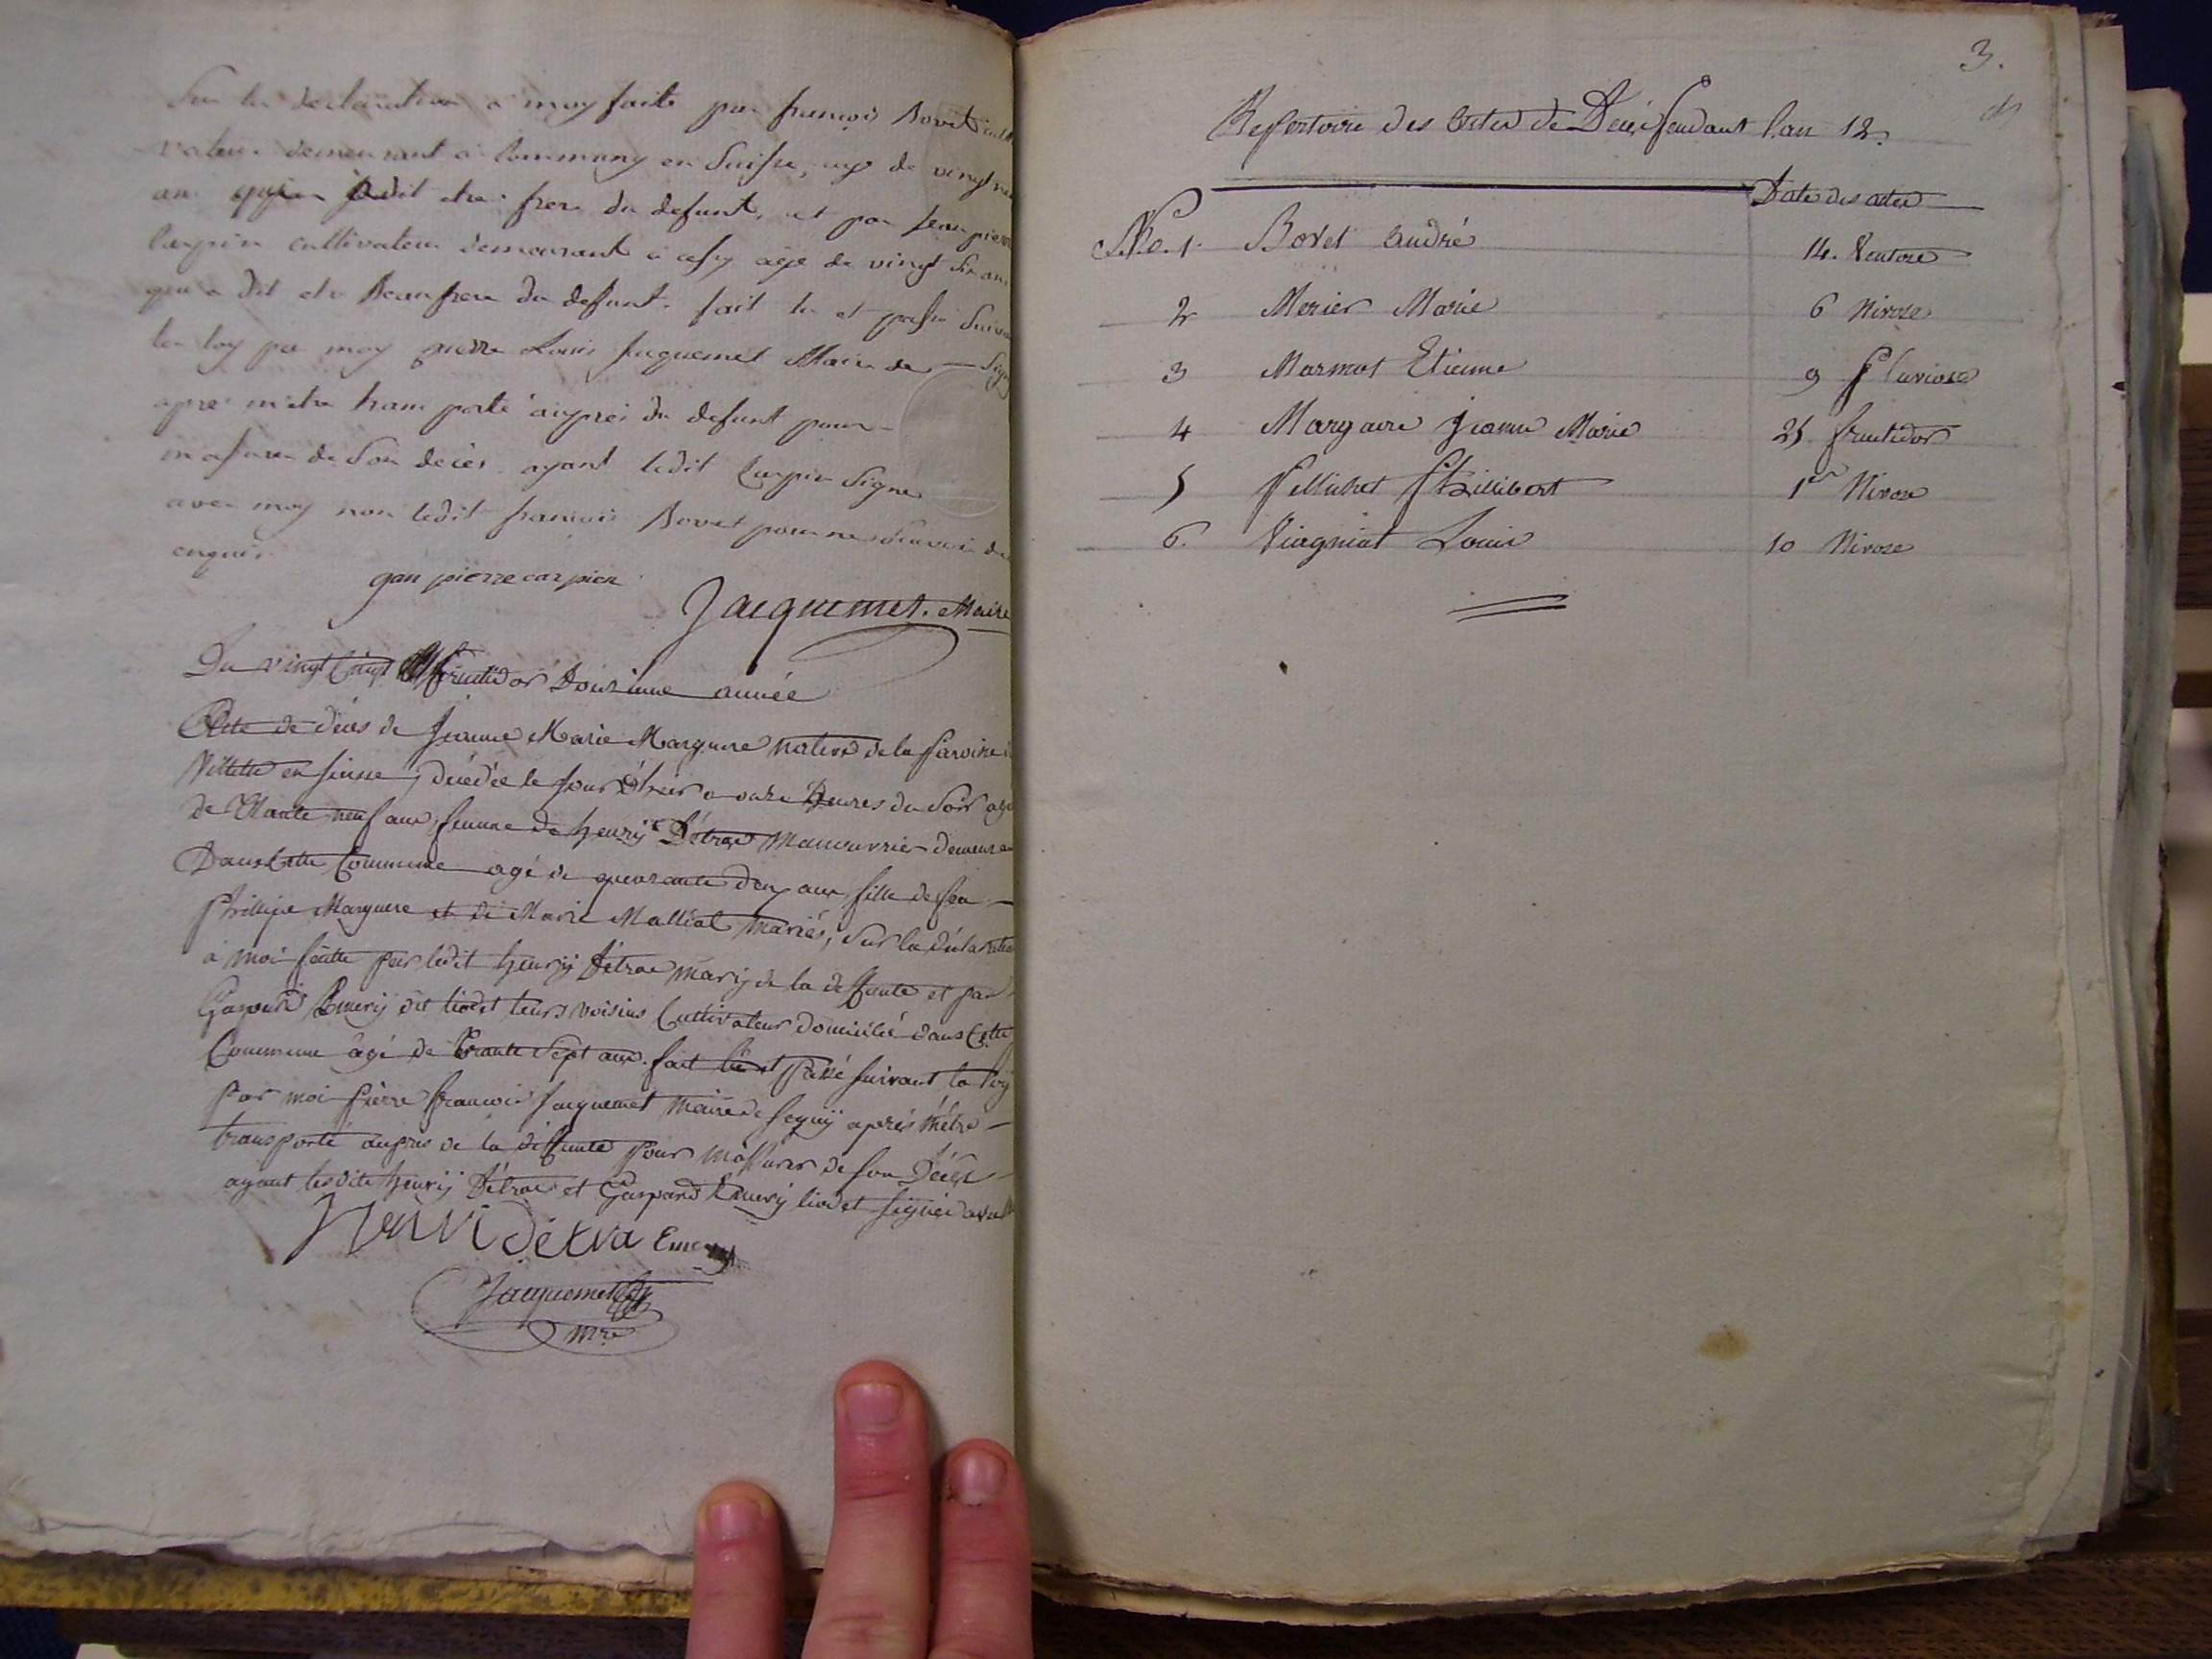 Sur la declaration a moy faite par francois Bovet culti
vateur demeurant a Commugny en Suisse, age de vingt
ans qui a dit etre frere du defunt, et par Jean pierre
Carpin cultivateur demeurant a age de vingt six ans
qui a dit etre Beaufrere du defunt. fait lu et passé suivant
la loy par moy pierre Louis Jaquemet Maire de
apres m'etre transporté aupres du defunt pour
m'assurer de son deces. ayant ledit Carpin signe
avec moy non ledit francois Bovet pour ne scavoir de
enquis.
gan pierre carpien
Jacquemet. Maire
Du vingt Cinq fructidor Douzieme année
Acte de déces de Jeanne Marie Marguere native de la Paroisse
Villette en suisse, décédée le jour d'hier a onze heures du Soir agé
de trante neuf ans, femme de henrij Détraz manouvrier demeuran
Dans Cette Commune agé de quarante deux ans fille de feu
Phillipe Marguere et de Marie Malliat mariés, Sur la déclaration
à moi faitte par ledit henrij Détraz marij de la deffunte et par
Gaspard Emerij dit liodet leurs voisins Cultivateur domicilié dans Cette
Commune âgé de trante Sept ans. fait lû et passé suivant la loij
Par moi Pierre francois Jacquemet maire de Segnij après m'être
transporté aupres de la déffunte pour m'assurer de son Déces
ayant lesdits henrij Détraz et Gaspard Emerij liodet signés avec
Henri détra Emery
Jacquemet
mre
3.
Repertoire des Actes de Décès pendant l'an 12.
Date des actes
No. 1. Bovet André 14. Ventose
2 Merier Marie 6 Nivose
3 Marmot Etienne 9 Pluviose
4 Margaire Jeanne Marie 25 fructidor
5 Pellichet Phillibert 1er Nivose
6. Viagniat Louis 10 Nivose